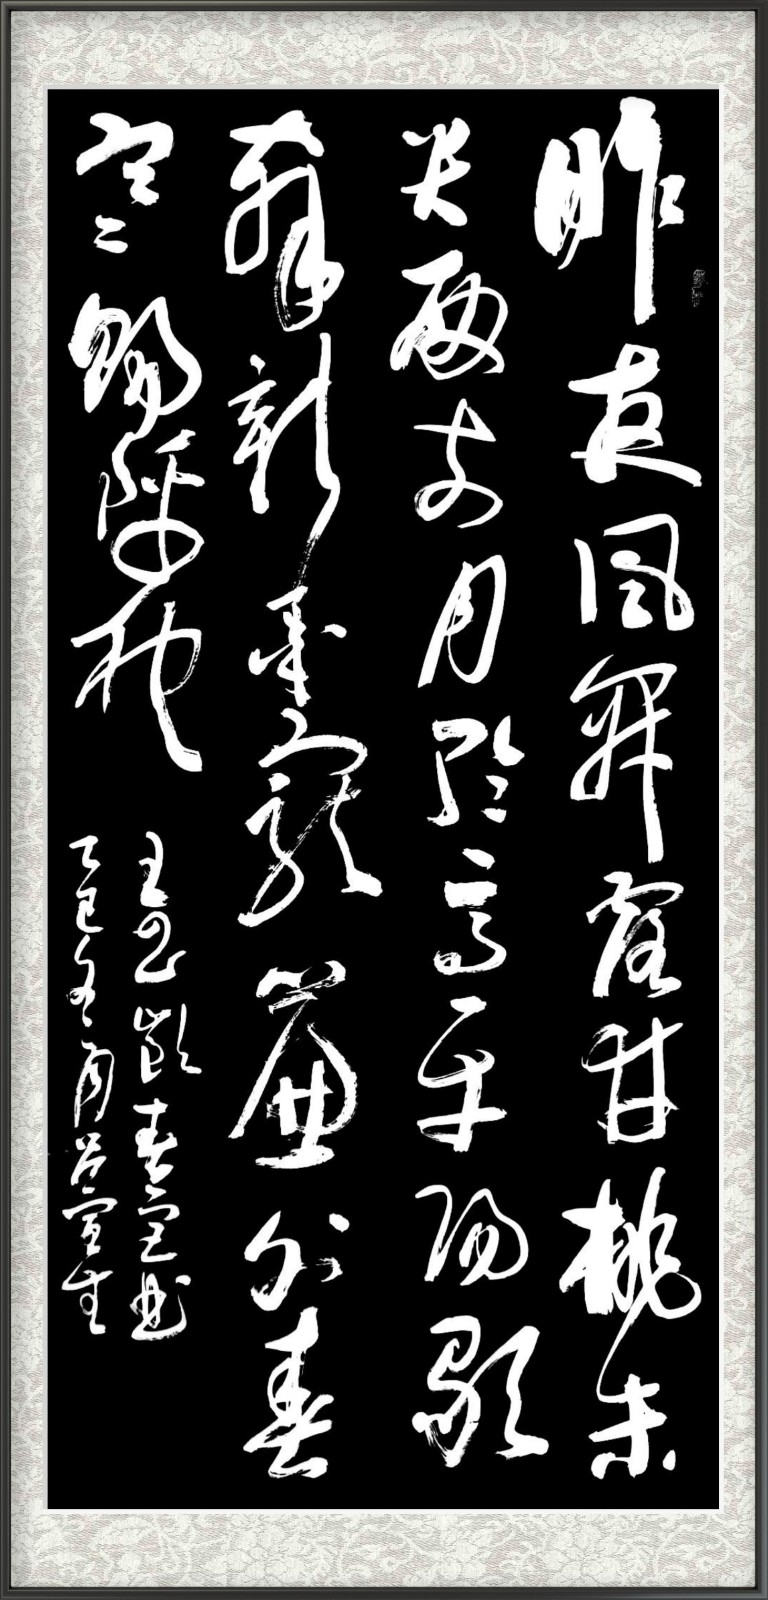 昨夜風開露井桃未
央殿前月輪高平陽歌
舞新承寵簾外春
寒賜錦袍
王昌齡春宮曲
乙巳冬月